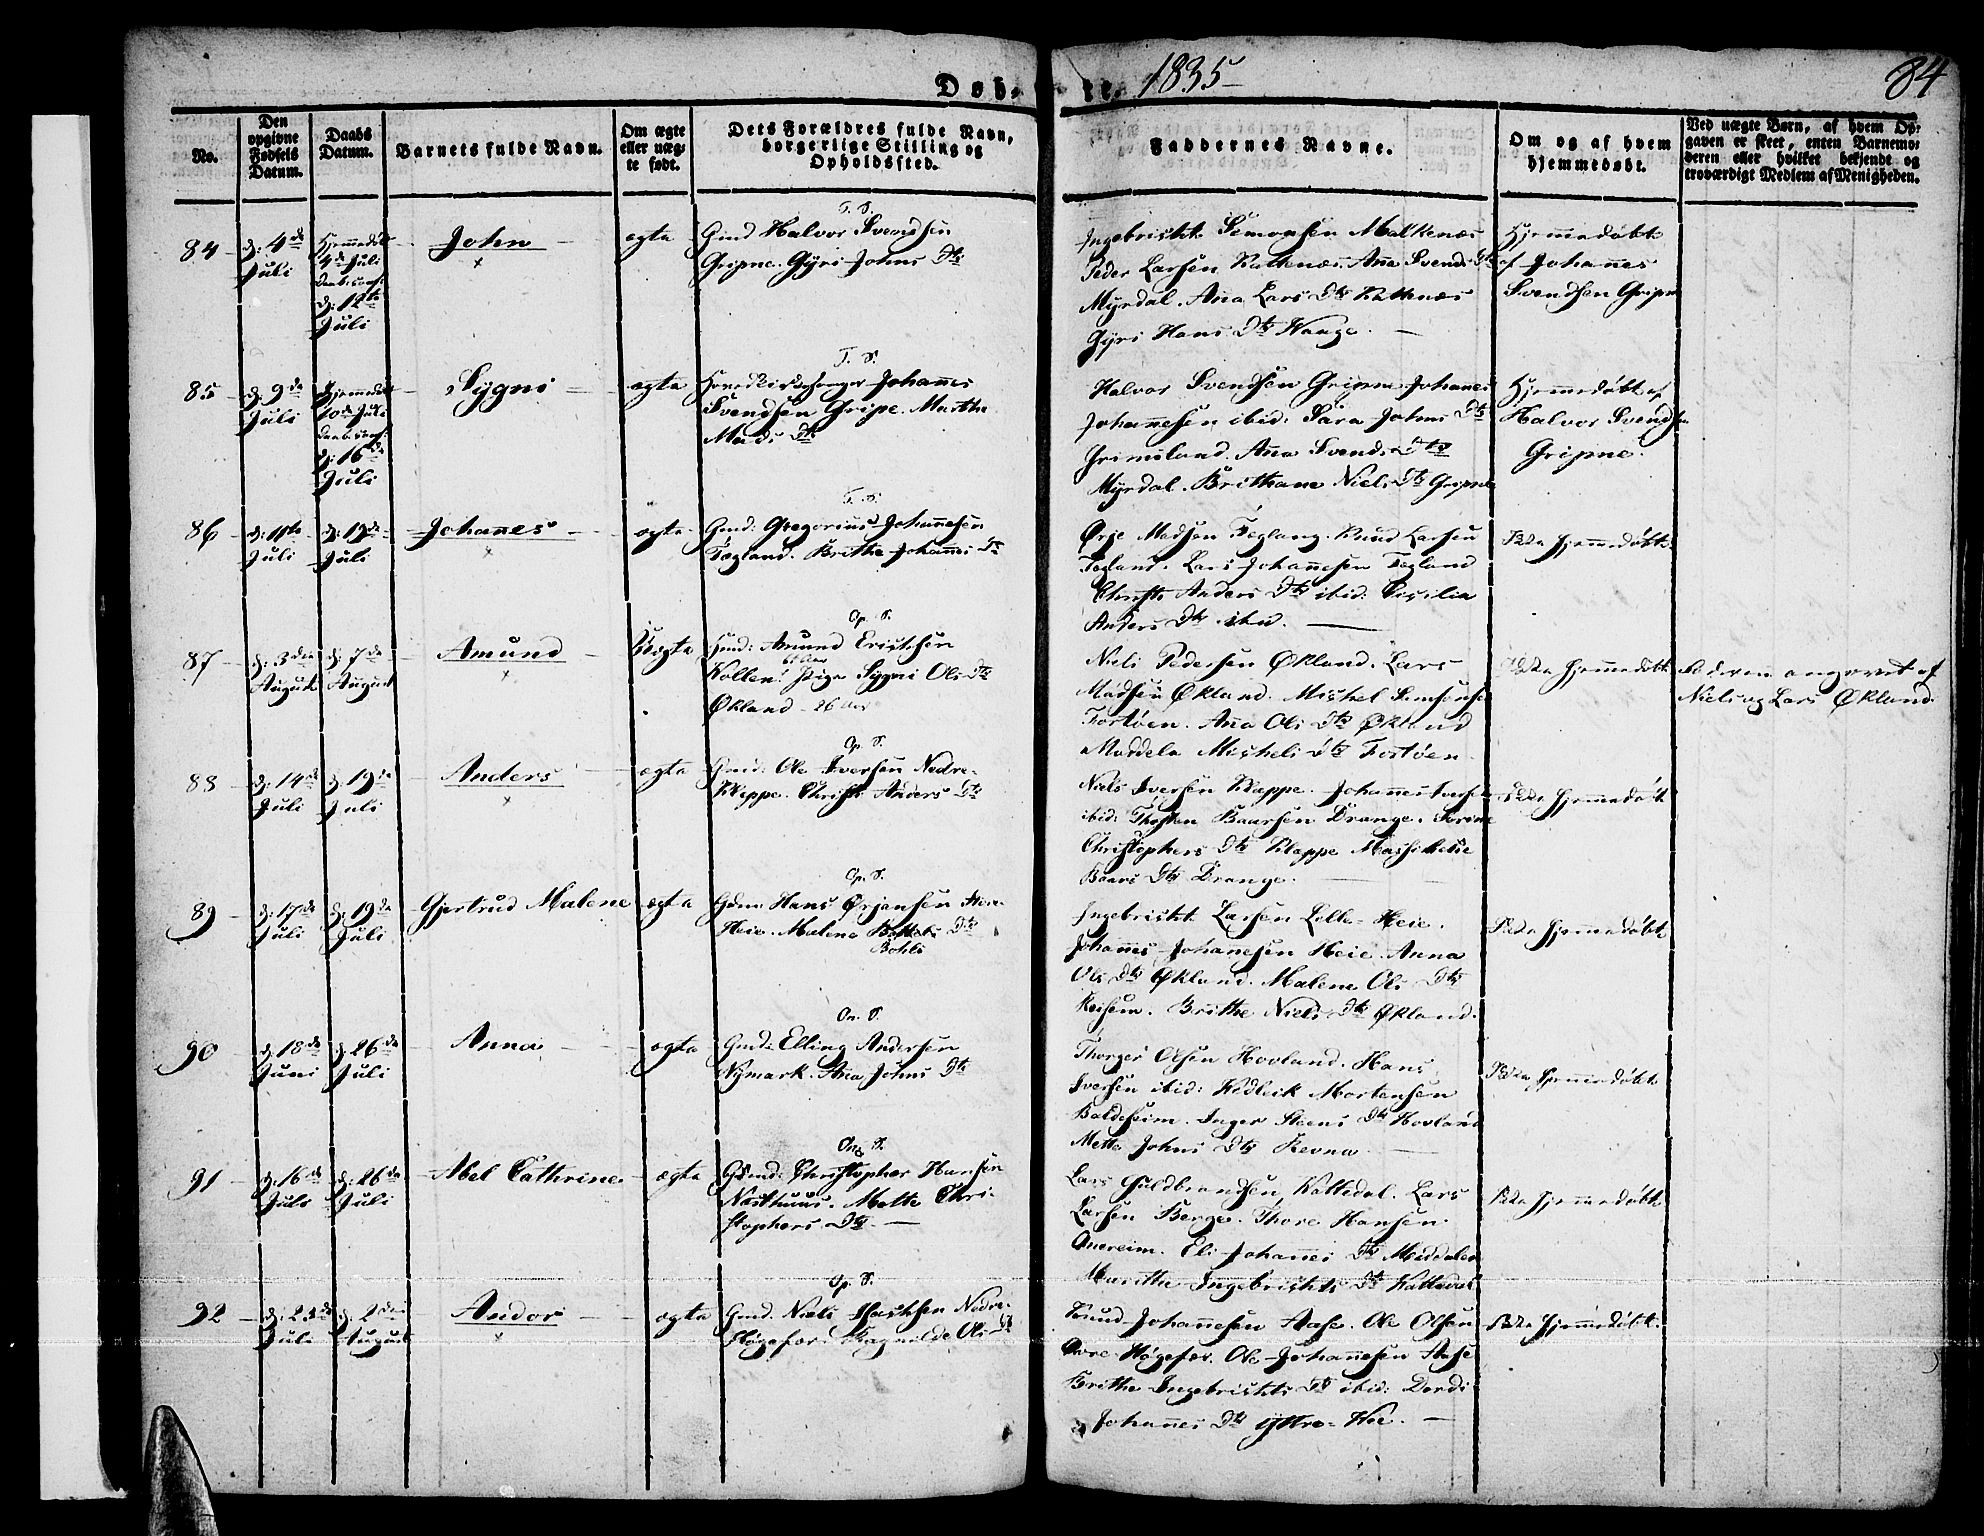 Døb-
te. 1835
84
No.
Den opgivne Fødsels Datum.
Daabs Datum.
Barnets fulde Navn.
Om ægte eller uægte født.
Dets Forældres fulde Navn, borgerlige Stilling og Opholdssted.
Faddernes Navne.
Om og af hvem hjemmedøbt.
Ved uægte Børn, af hvem Opgaven er skeet, enten Barnemoderen eller hvilket bekjendt og troværdigt Medlem af Menigheden.
T. S.
84 d: 4de Juli
Hjemmedøbt 4de Juli
d: 12te Juli
John
ægte
Gmd Halvor Svendsen
Gripne. Gyri Johns Dtr
Ingebricht Simonsen Malkenæs
Peder Larsen Kalkenæs. Aña Svends Dtr
Myrdal. Aña Lars Dtr Kalkenæs
Gyri Hans Dtr Waage.
Hjemmedøbt
af Johannes
Svendsen Gripne
T. S.
85 d: 9de Juli
Hjemmedøbt 10de Juli
d: 16de Juli
Sygni
ægte
Johannes
Svendsen Gripe. Marthe
Mads Dtr
Halvor Svendsen Gripne. Johanes
Johañesen ibid: Sara Johns Dtr
Grimsland. Ana Svends Dtr
Myrdal. Brithane Niels Dtr Gripne
Hjemmedøbt af
Halvor Svendsen
Gripne.
T. S.
86 d: 11te Juli
d: 12de Juli
Johañes
ægte
Gmd: Gregorius Johañesen
Tøgland. Brithe Johannes Dtr
Ørje Madsen Teglang. Knud Larsen
Tegland. Lars Johañesen Tegland
Christi Anders Dtr ibid: Cicilia
Anders Dtr ibid.
Ikke hjemmedøbt
Op. S.
87 d: 3die August
d: 7de August
Amund
Uægte
Gmd: Amund Erichsen
Kollen. Pige Sygni Ols Dtr
Økland 26 Aar
Niels Pedersen Økland. Lars
Madsen Økland. Michel Simonsen
Tostøen. Aña Ols Dtr Økland
Maddela Michels Dtr Tostøen.
Ikke hjemmedøbt
Faderen angivet af
Niels og Lars Økland.
Op. S.
88 d: 14de Juli
d: 19de Juli
Anders
ægte
Gmd: Ole Iversen Nedre-
Klappe. Christi Anders Dtr
Niels Iversen Klappe. Johannes Iversen
ibid: Thosten Baarsen Drange. Serine
Christophers Dtr Klappe
Baars Dtr Drange.
Ikke hjemmedøbt
Op. S.
89 d: 17de Juli
d: 19de Juli
Gjertrud Malene
ægte
Gdm: Hans Ørjansen Store
Heie. Malene Dtr
Ingebricht Larsen Lille-Heie.
Johannes Johañesen Heie. Anna
Ols Dtr Økland. Malene Ols Dtr
Reisem. Brithe Niels Dtr Økland.
Ikke hjemmedøbt
On. S.
90 d: 18de Juni
d: 26de Juli
Anna
ægte
Gmd: Elling Andersen
Nymark. Aña Johns Dtr
Thorger Olsen Hovland. Hans
Iversen ibid: Mortensen
Baldesheim. Inger Steens Dtr Hovland
Mette Johns Dtr Revna.
Ikke hjemmedøbt
On. S.
91 d: 16de Juli
d: 26de Juli
Abel Cathrine
ægte
Gmd: Christopher Hansen
Næsthuus. Mette Chri-
stophers Dtr.
Lars Guldbrandsen Kattedal. Lars
Larsen Berge. Thore Hansen
Qvereim. Eli Johañes Dtr Meddalen
Maritha Ingebrichts Dtr Kattedal
Ikke hjemmedøbt
Op. S.
92 d: 23de Juli
d: 2den August
Andor
ægte
Gmd: Niels Nedre-
Høgefor. Ragnilde Ols Dtr
Knud Johañesen Aase. Ole Olsen
Øvre-Høgefor. Ole Johañesen Aase
Brithe Ingebrichts Dtr ibid: Dordi
Johañes Dtr Yttre-Hee.
Ikke hjemmedøbt.